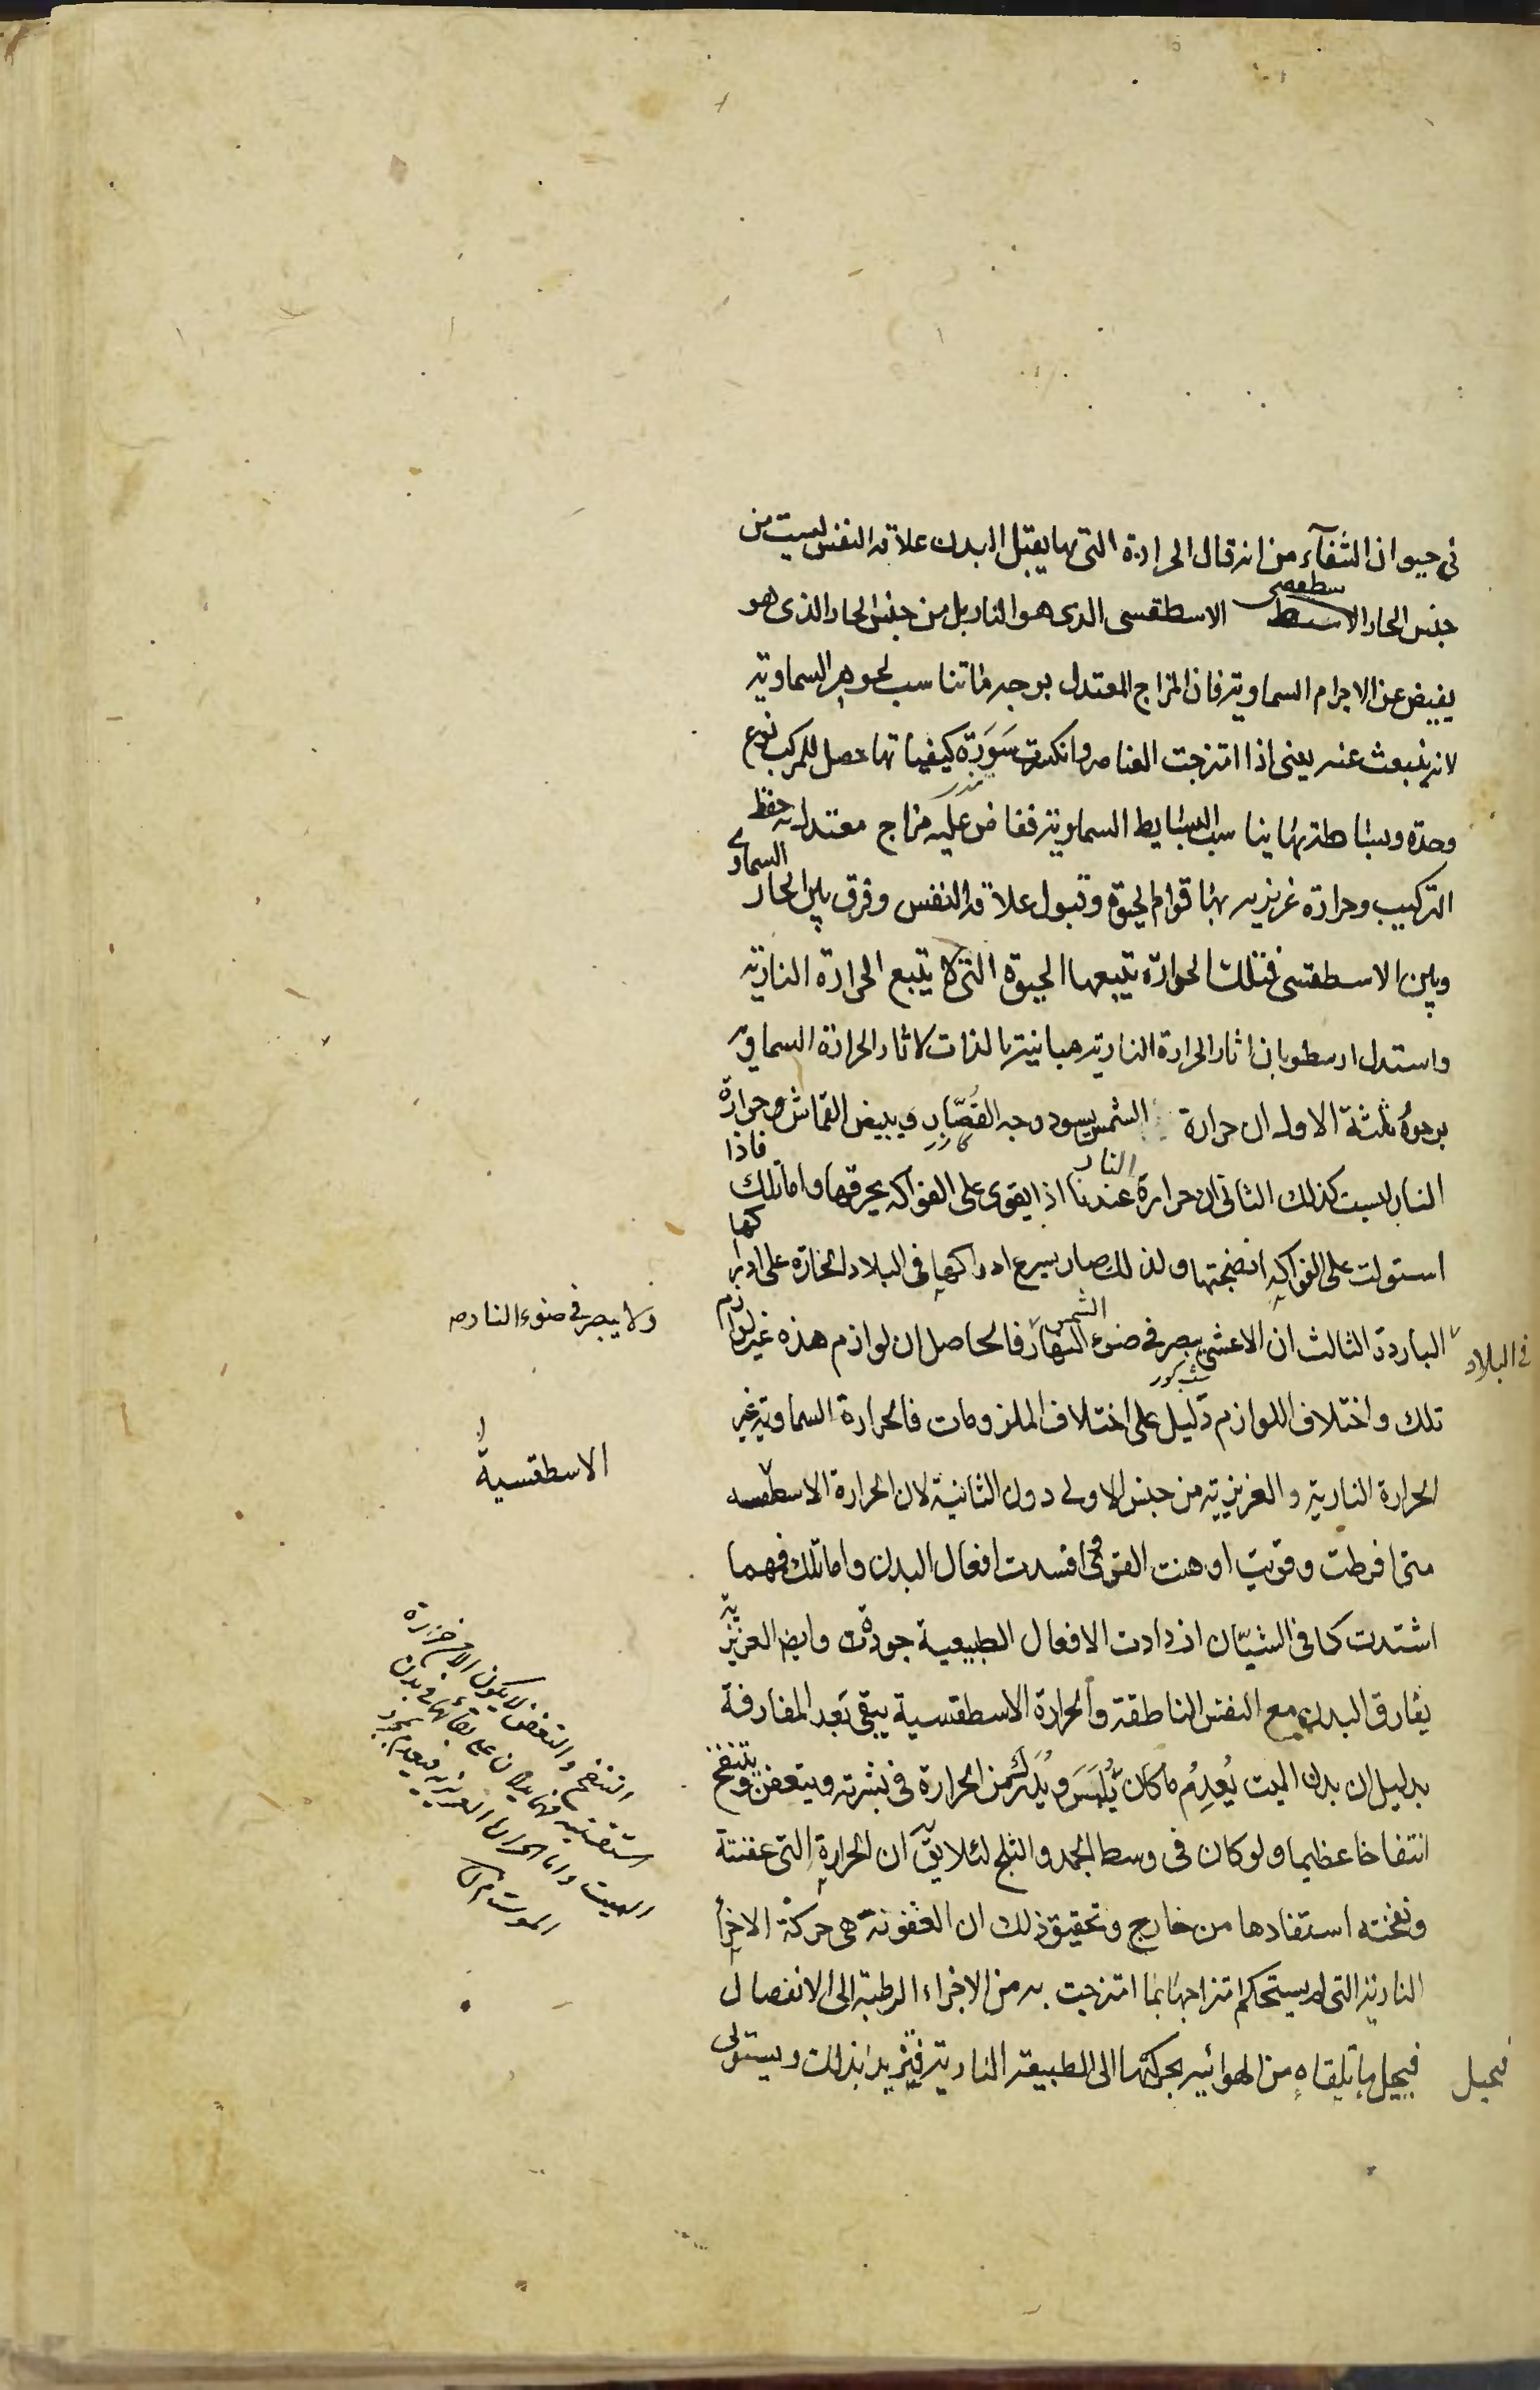 في حيوان الشفآء من انه قال الحرارة التي بها يقبل البدن علاقه النفس ليست من
جنس الحار الاسطقسي الذي هو النار بل من جنس الحار الذي هو
يفيض عن الاجرام السماوية فان المزاج المعتدل بوجه ما تناسب لجوهر السماوية
لانه ينبعث عنه يعني اذا امتزجت العناصر وانكسرت سَوَرَة كيفياتها حصل للمركب نوع
وحدة وبساطة بها يناسب البسايط السماوية ففاض عليه مزاج معتدل به حفظ
التركيب وحرارة غريزيه بها قوام الحيوة وقبول علاقة النفس وفرق بين الحار السماوي
وبين الاسطقسي فتلك الحرارة يتبعها الحيوة التي لا يتبع الحرارة النارية
واستدل ارسطو بان اثار الحرارة النارية مباينة بالذات لاثار الحرارة السماوية
بوجوه ثلثة الاول ان حرارة الشمس يسود وجه القصّار ويبيض القماش وحرارة
النار ليست كذلك الثاني ان حرارة النار عندنا اذا يقوى على الفواكه يحرقها واما تلك فاذا
استولت على الفواكه انضجتها ولذلك صار يسرع ادراكها في البلاد الحارة على ادراكها
في البلاد
الباردة الثالث ان الاعشى يبصر في ضوء الشمس النهار فالحاصل ان لوازم هذه غير لوازم
شب كور
ولا يبصر في ضوء النار صه
تلك واختلاف اللوازم دليل على اختلاف الملزومات فالحرارة السماوية غير
الحرارة النارية والغريزية من جنس الاولى دون الثانية لان الحرارة الاسطقسيه
الاسطقسية
متى افرطت وقويت اوهنت القوى افسدت افعال البدن واما تلك فمهما
اشتدت كما في الشبّان ازدادت الافعال الطبيعية جودة وايضا الغريزية
يفارق البدن مع النفس الناطقة والحرارة الاسطقسية يبقى بَعد المفارقة
بدليل ان بدن الميت يُعدِمُ ما كان يُلمَسَ ويُدرَك من الحرارة في بشرته ويتعفن وينتفخ
انتفاخا عظيما ولو كان في وسط الجمد والثلج لئلا يقّ ان الحرارة التي عفنته
ونفخته استفادها من خارج وتحقيق ذلك ان العفونة هي حركة الاجزا
النارية التي لم يستحكم امتزاجها بما امتزجت به من الاجزاء الرطبة الى الانفصال
فيحيل ما تلقاه من الهوائيه بحركتها الى الطبيعة النارية فيتزيد بذلك ويستولى
فيحيل
التنفخ والتعفن لا يكون الا من حرارة
استقسيه فهما يدلان على بقائها في بدن
الميت واما الحرارة الغريزيه فيعدم بمجرد
الموت